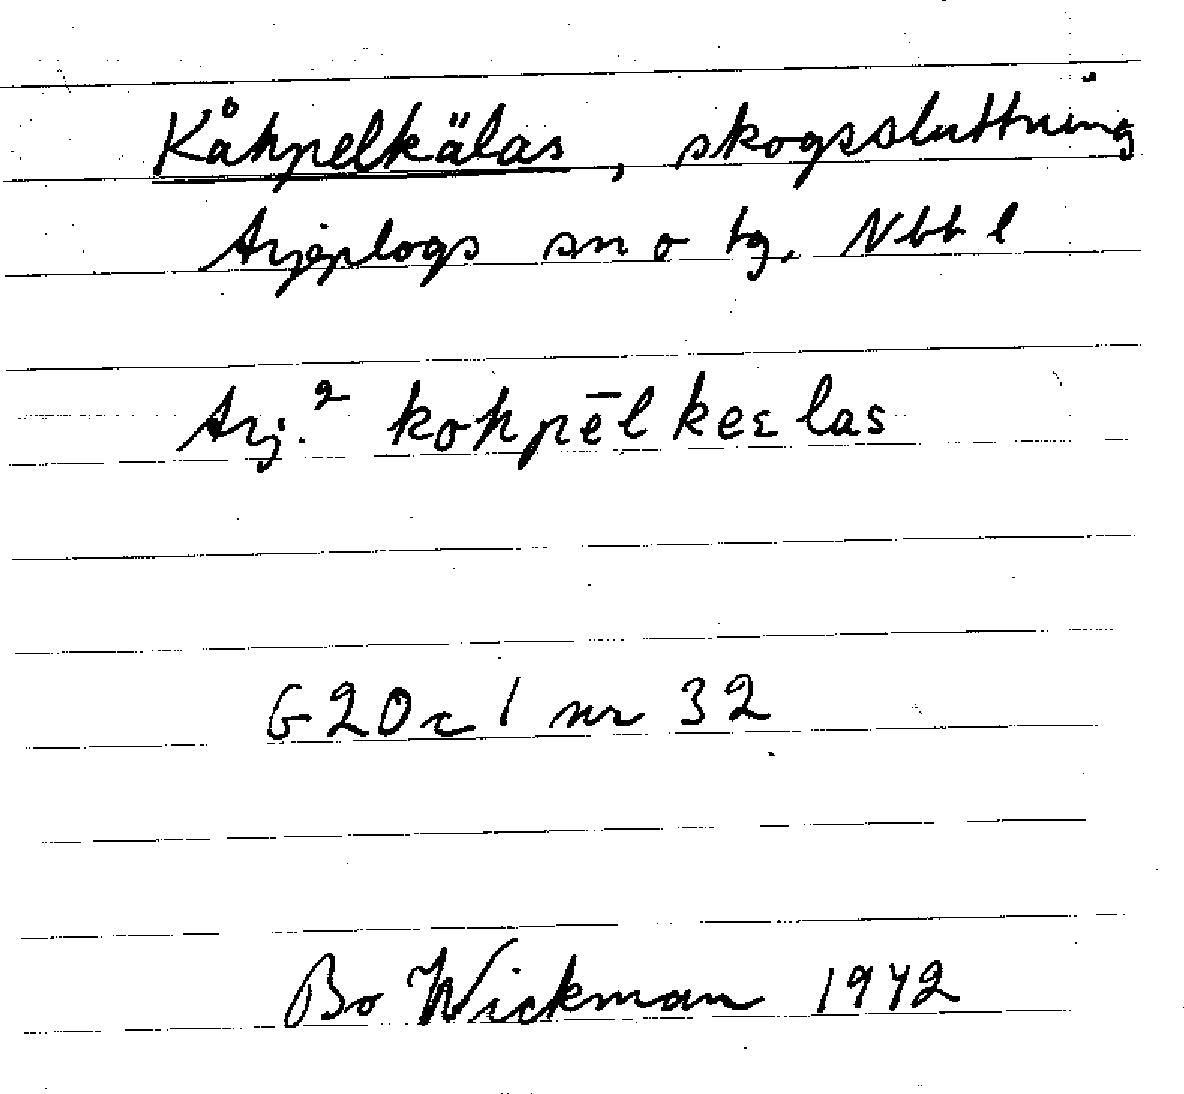 Kåhpelkälas, skogssluttning
Arjeplogs sn o tg. Nbt l
Arj.² kohpēlkeɛlas
G20c1 nr 32
Bo Wickman 1942